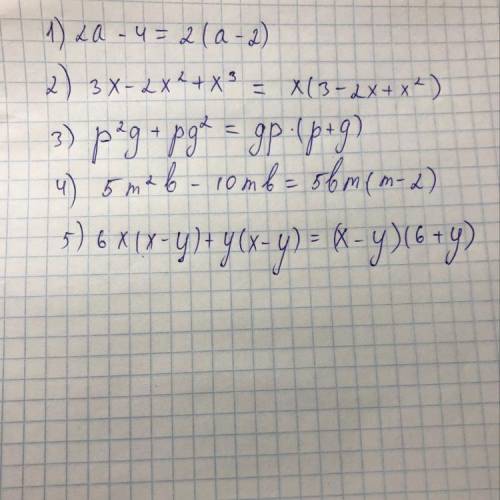 1) 2a - 4 = 2(a-2)
2) 3x - 2x² + x³ = x(3-2x+x²)
3) p²g + pg² = gp·(p+g)
4) 5m²b - 10mb = 5bm(m-2)
5) 6x(x-y)+y(x-y) = (x-y)(6+y)